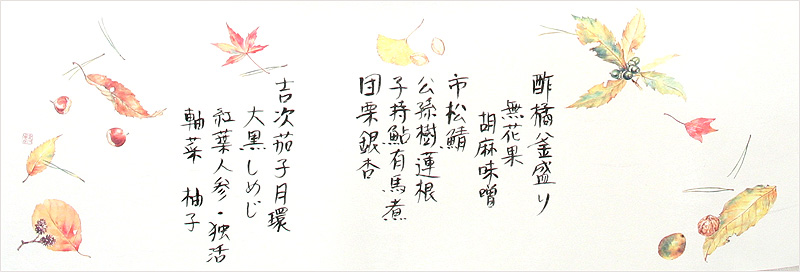 酢橘釜盛り
無花果
胡麻味噌
市松鯖
公孫樹蓮根
子持鮎有馬煮
団栗銀杏
吉次茄子月環
大黒しめじ
紅葉人参・独活
軸菜 柚子